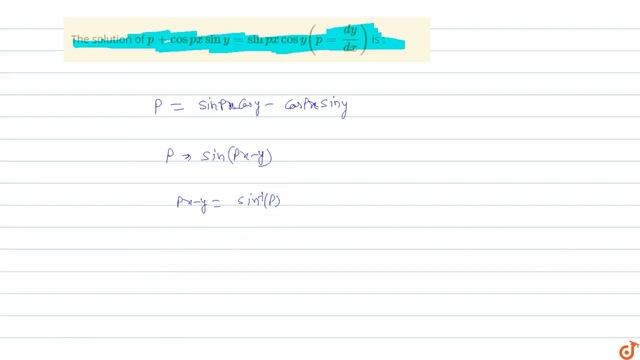 The solution of p + cos px sin y = sin px cos y (p = dy/dx) is :
P = sinPx Cosy - CosPx siny
P → sin(Px-y)
Px-y = sin⁻¹(P)